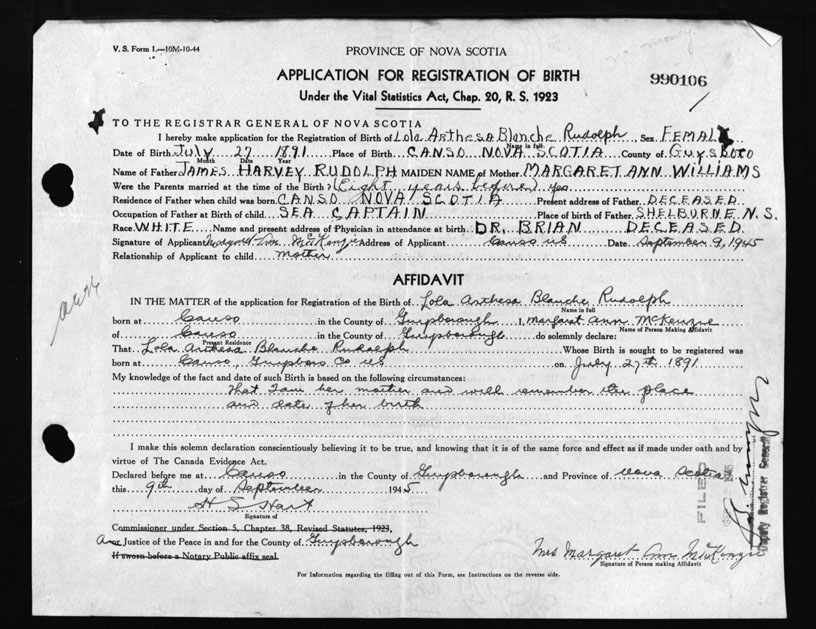 V. S. Form 1.—10M-10-44
PROVINCE OF NOVA SCOTIA
no money
APPLICATION FOR REGISTRATION OF BIRTH
990106
Under the Vital Statistics Act, Chap. 20, R. S. 1923
TO THE REGISTRAR GENERAL OF NOVA SCOTIA
I hereby make application for the Registration of Birth of Lola Arthesa Blanche Rudolph Sex FEMAL
Name in full
Date of Birth JULY 27 1891 Place of Birth CANSO NOVA SCOTIA County of Guysboro
Month Date Year
Name of Father JAMES HARVEY RUDOLPH MAIDEN NAME of Mother MARGARET ANN WILLIAMS
Were the Parents married at the time of the Birth? (Eight years before) yes
Residence of Father when child was born CANSO NOVA SCOTIA Present address of Father DECEASED
Occupation of Father at Birth of child SEA CAPTAIN Place of birth of Father SHELBURNE N.S.
Race WHITE Name and present address of Physician in attendance at birth DR. BRIAN DECEASED
Signature of Applicant Margaret Ann McKenzie Address of Applicant Canso NS Date September 9, 1945
Relationship of Applicant to child mother
AFFIDAVIT
IN THE MATTER of the application for Registration of the Birth of Lola Arthesa Blanche Rudolph
Name in full
born at Canso in the County of Guysborough I, Margaret Ann McKenzie
Name of Person Making Affidavit
of Canso in the County of Guysborough do solemnly declare:
Present Residence
That Lola Arthesa Blanche Rudolph Whose Birth is sought to be registered was
born at Canso, Guysboro Co NS on July 27th 1891
My knowledge of the fact and date of such Birth is based on the following circumstances:
that I am her mother and well remember the place
and date of her birth
I make this solemn declaration conscientiously believing it to be true, and knowing that it is of the same force and effect as if made under oath and by
virtue of The Canada Evidence Act.
Declared before me at Canso in the County of Guysborough and Province of Nova Scotia
this 9th day of September 1945
H S Hart
Signature of
Commissioner under Section 5, Chapter 38, Revised Statutes, 1923,
Justice of the Peace in and for the County of Guysborough
If sworn before a Notary Public affix seal.
Mrs Margaret Ann McKenzie
Signature of Person making Affidavit
For Information regarding the filling out of this Form, see Instructions on the reverse side.
FILED
Deputy Registrar General